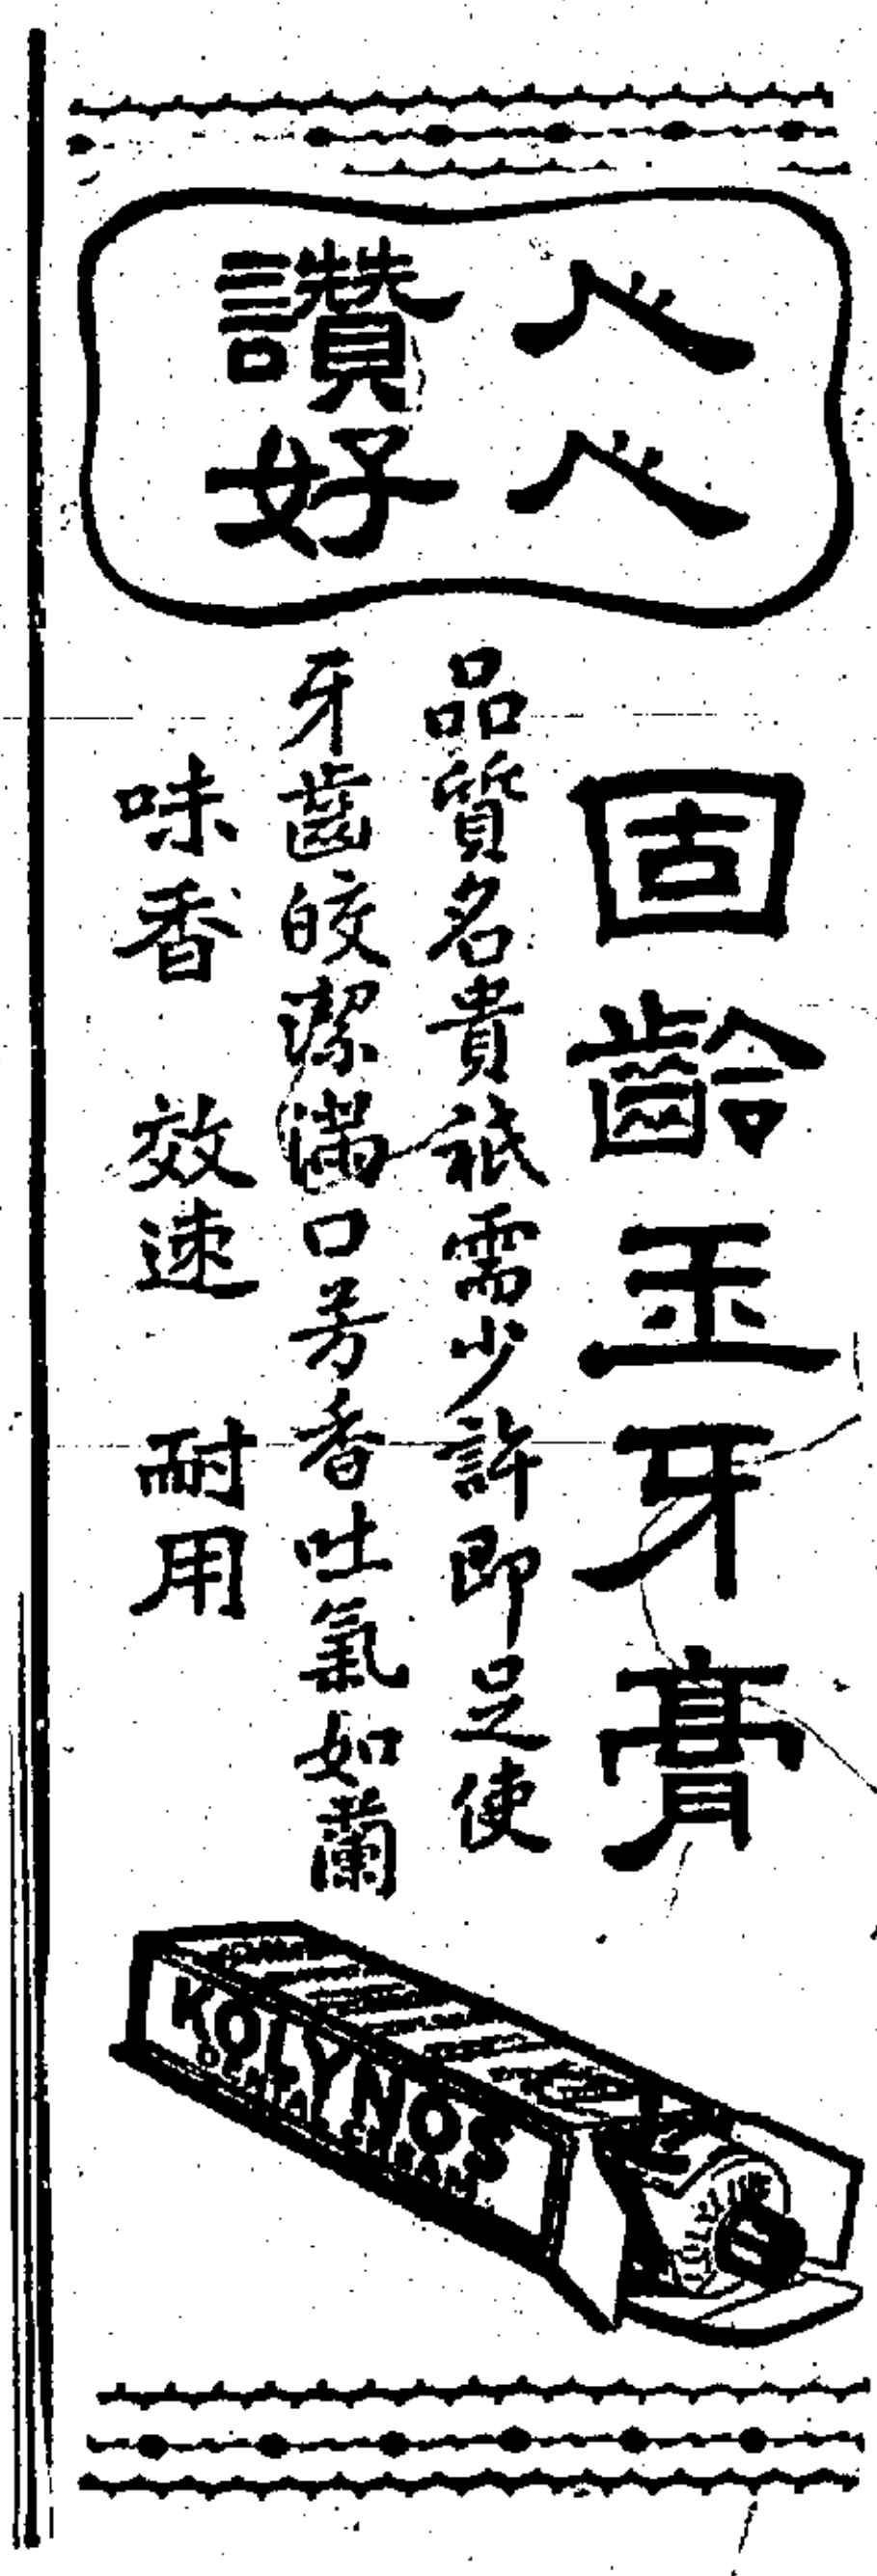 人人
讚好
固齡玉牙膏
品質名貴祇需少許即足使
牙齒皎潔滿口芳香吐氣如蘭
味香 效速 耐用
KOLYNOS
DENTAL CREAM